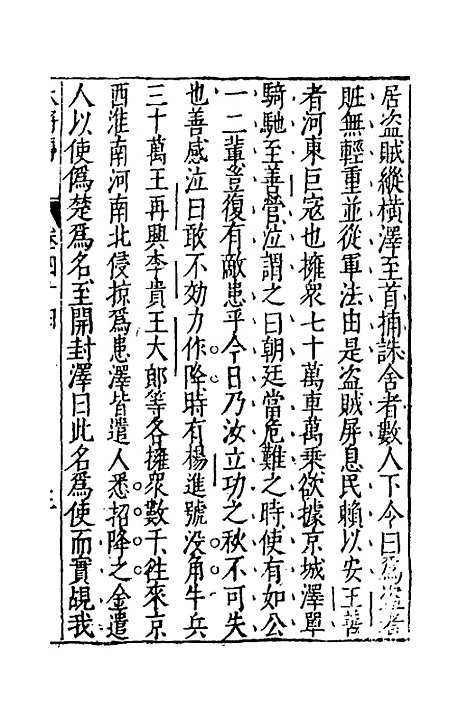 居盗賊縱橫澤至首捕誅舍者數人下令曰爲盗者
賍無輕重並從軍法由是盗賊屏息民賴以安王善
者河東巨寇也擁衆七十萬車萬乘欲據京城澤單
騎馳至善營泣謂之曰朝廷當危難之時使有如公
一二輩豈復有敵患乎今日乃汝立功之秋不可失
也善感泣曰敢不効力作降時有楊進號没角牛兵
三十萬王再興李貴王大郎等各擁衆數千往來京
西淮南河南北侵掠爲患澤皆遣人悉招降之金遣
人以使僞楚爲名至開封澤曰此名爲使而實覘我
卷四十四